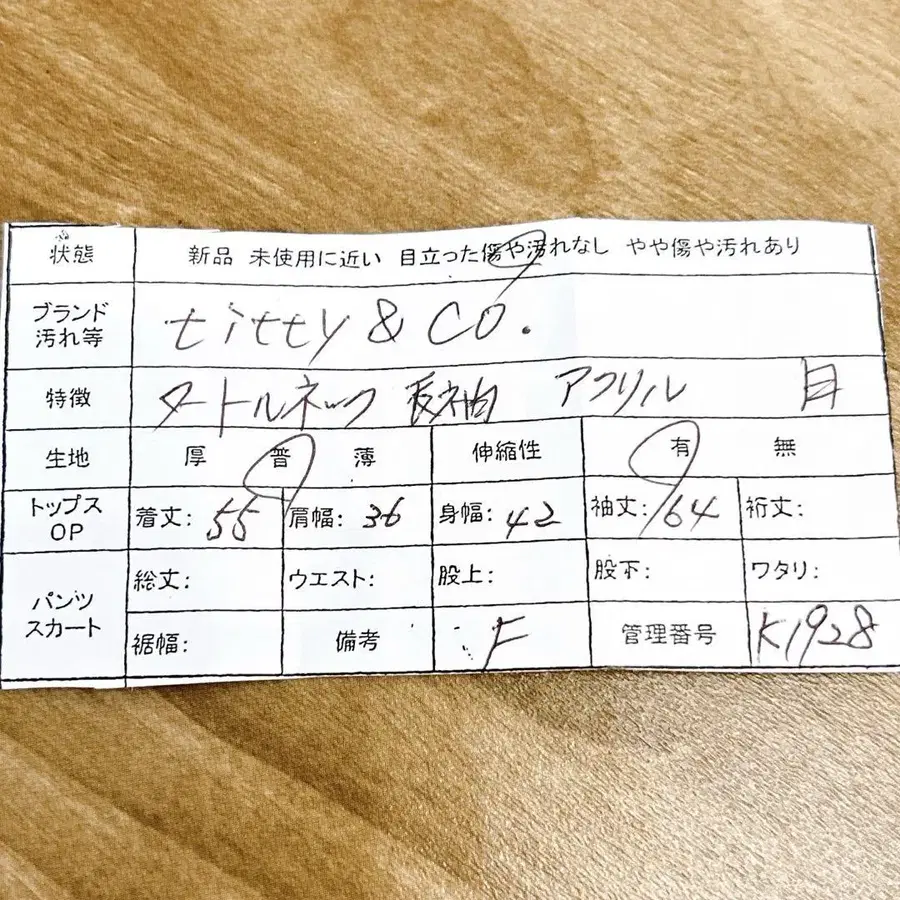 状態 新品 未使用に近い 目立った傷や汚れなし やや傷や汚れあり
ブランド 汚れ等 titty & co.
特徴 タートルネック 長袖 アクリル
生地 厚 普 薄 伸縮性 有 無
トップス OP 着丈: 55 肩幅: 36 身幅: 42 袖丈: 64 裄丈:
パンツ スカート 総丈: ウエスト: 股上: 股下: ワタリ:
裾幅: 備考 F 管理番号 K1928